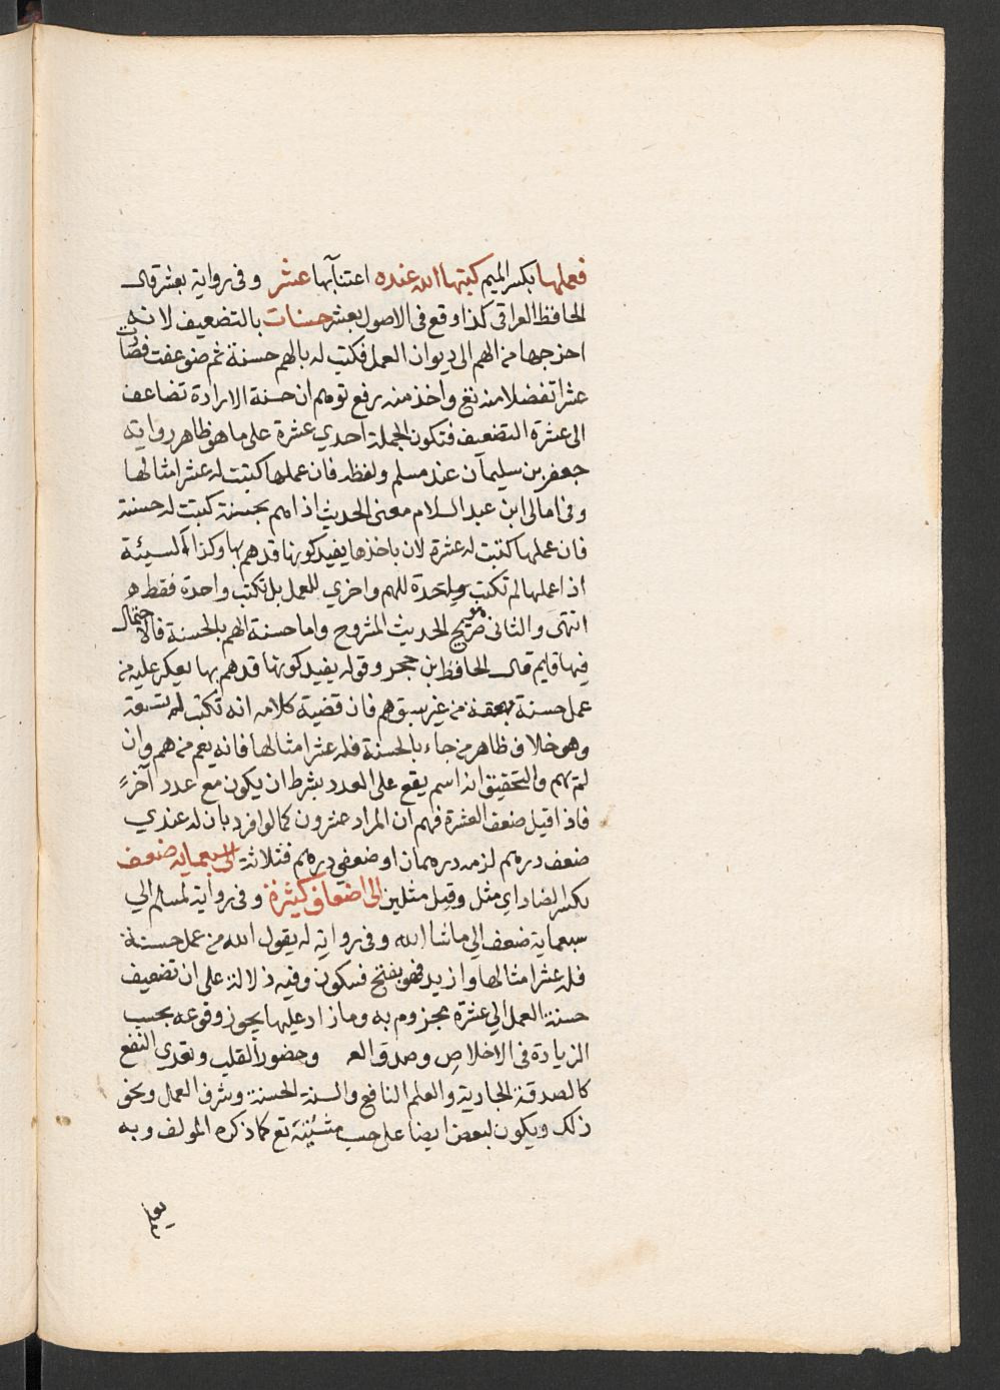 فعملها بكسر الميم كتبها الله عنده اعتنآبها عشر وفى رواية بعشر قال
الحافظ العراقى كذا وقع فى الاصول بعشر حسنات بالتضعيف لانه
اخرجها من الهم الى ديوان العمل فكتب له بالهم حسنة ثم ضوعفت فصارت
عشرا تفضلا منه تع واخذ منه برفع توهم ان حسنة الارادة تضاعف
الى عشرة التضعيف فتكون الجملة احدي عشرة على ما هو ظاهر رواية
جعفر بن سليمآن عند مسلم ولفظه فان عملها كتبت له عشر امثالها
وفى امالى ابن عبد السلام معنى الحديث اذا هم بحسنة كتبت له حسنة
فان عملها كتبت له عشرة لان باخذها يفيد كونها قدهم بها وكذا السيئة
اذا عملها لم تكتب واحدة للهم واخري للعمل بل تكتب واحدة فقط ه
انتهى والثانى صريح الحديث المشروح واما حسنة الهم بالحسنة فالاحتمال
فيها قايم قال الحافظ بن حجر وقوله يفيد كونها قدهم بها يعكر عليه من
عمل حسنة من غير سبق هم فان قضية كلامه انه تكتب له تسعة
وهو خلاف ظاهر من جاء بالحسنة فله عشر امثالها فانه يعم من هم وان
لم يهم والتحقيق انه اسم يقع على العدد بشرط ان يكون مع عدد آخر
فاذا قيل ضعف العشرة فهم ان المراد عشرون كما لو افرد بان له عندي
ضعف درهم لزمه درهمان او ضعفي درهم فثلاثة الى سبعماية ضعف
بكسر الضاد اي مثل وقيل مثلين الى اضعاف كثيرة وفى رواية لمسلم الي
سبعماية ضعف الي ماشا الله وفى رواية له يقول الله من عمل حسنة
فله عشر امثالها وازيد فهو بفتح فسكون وفيه دلالة على ان تضعيف
حسنة العمل الي عشرة مجزوم به وما زاد عليها يجوز وقوعه بحسب
الزيادة فى الاخلاص وصدق الع وحضور القلب وتعدي النفع
كالصدقة الجارية والعلم النافع والسنة الحسنة وشرف العمال ونحو
ذلك ويكون لبعض ايضا على حسب مشيئته تع كما ذكره المولف وبه